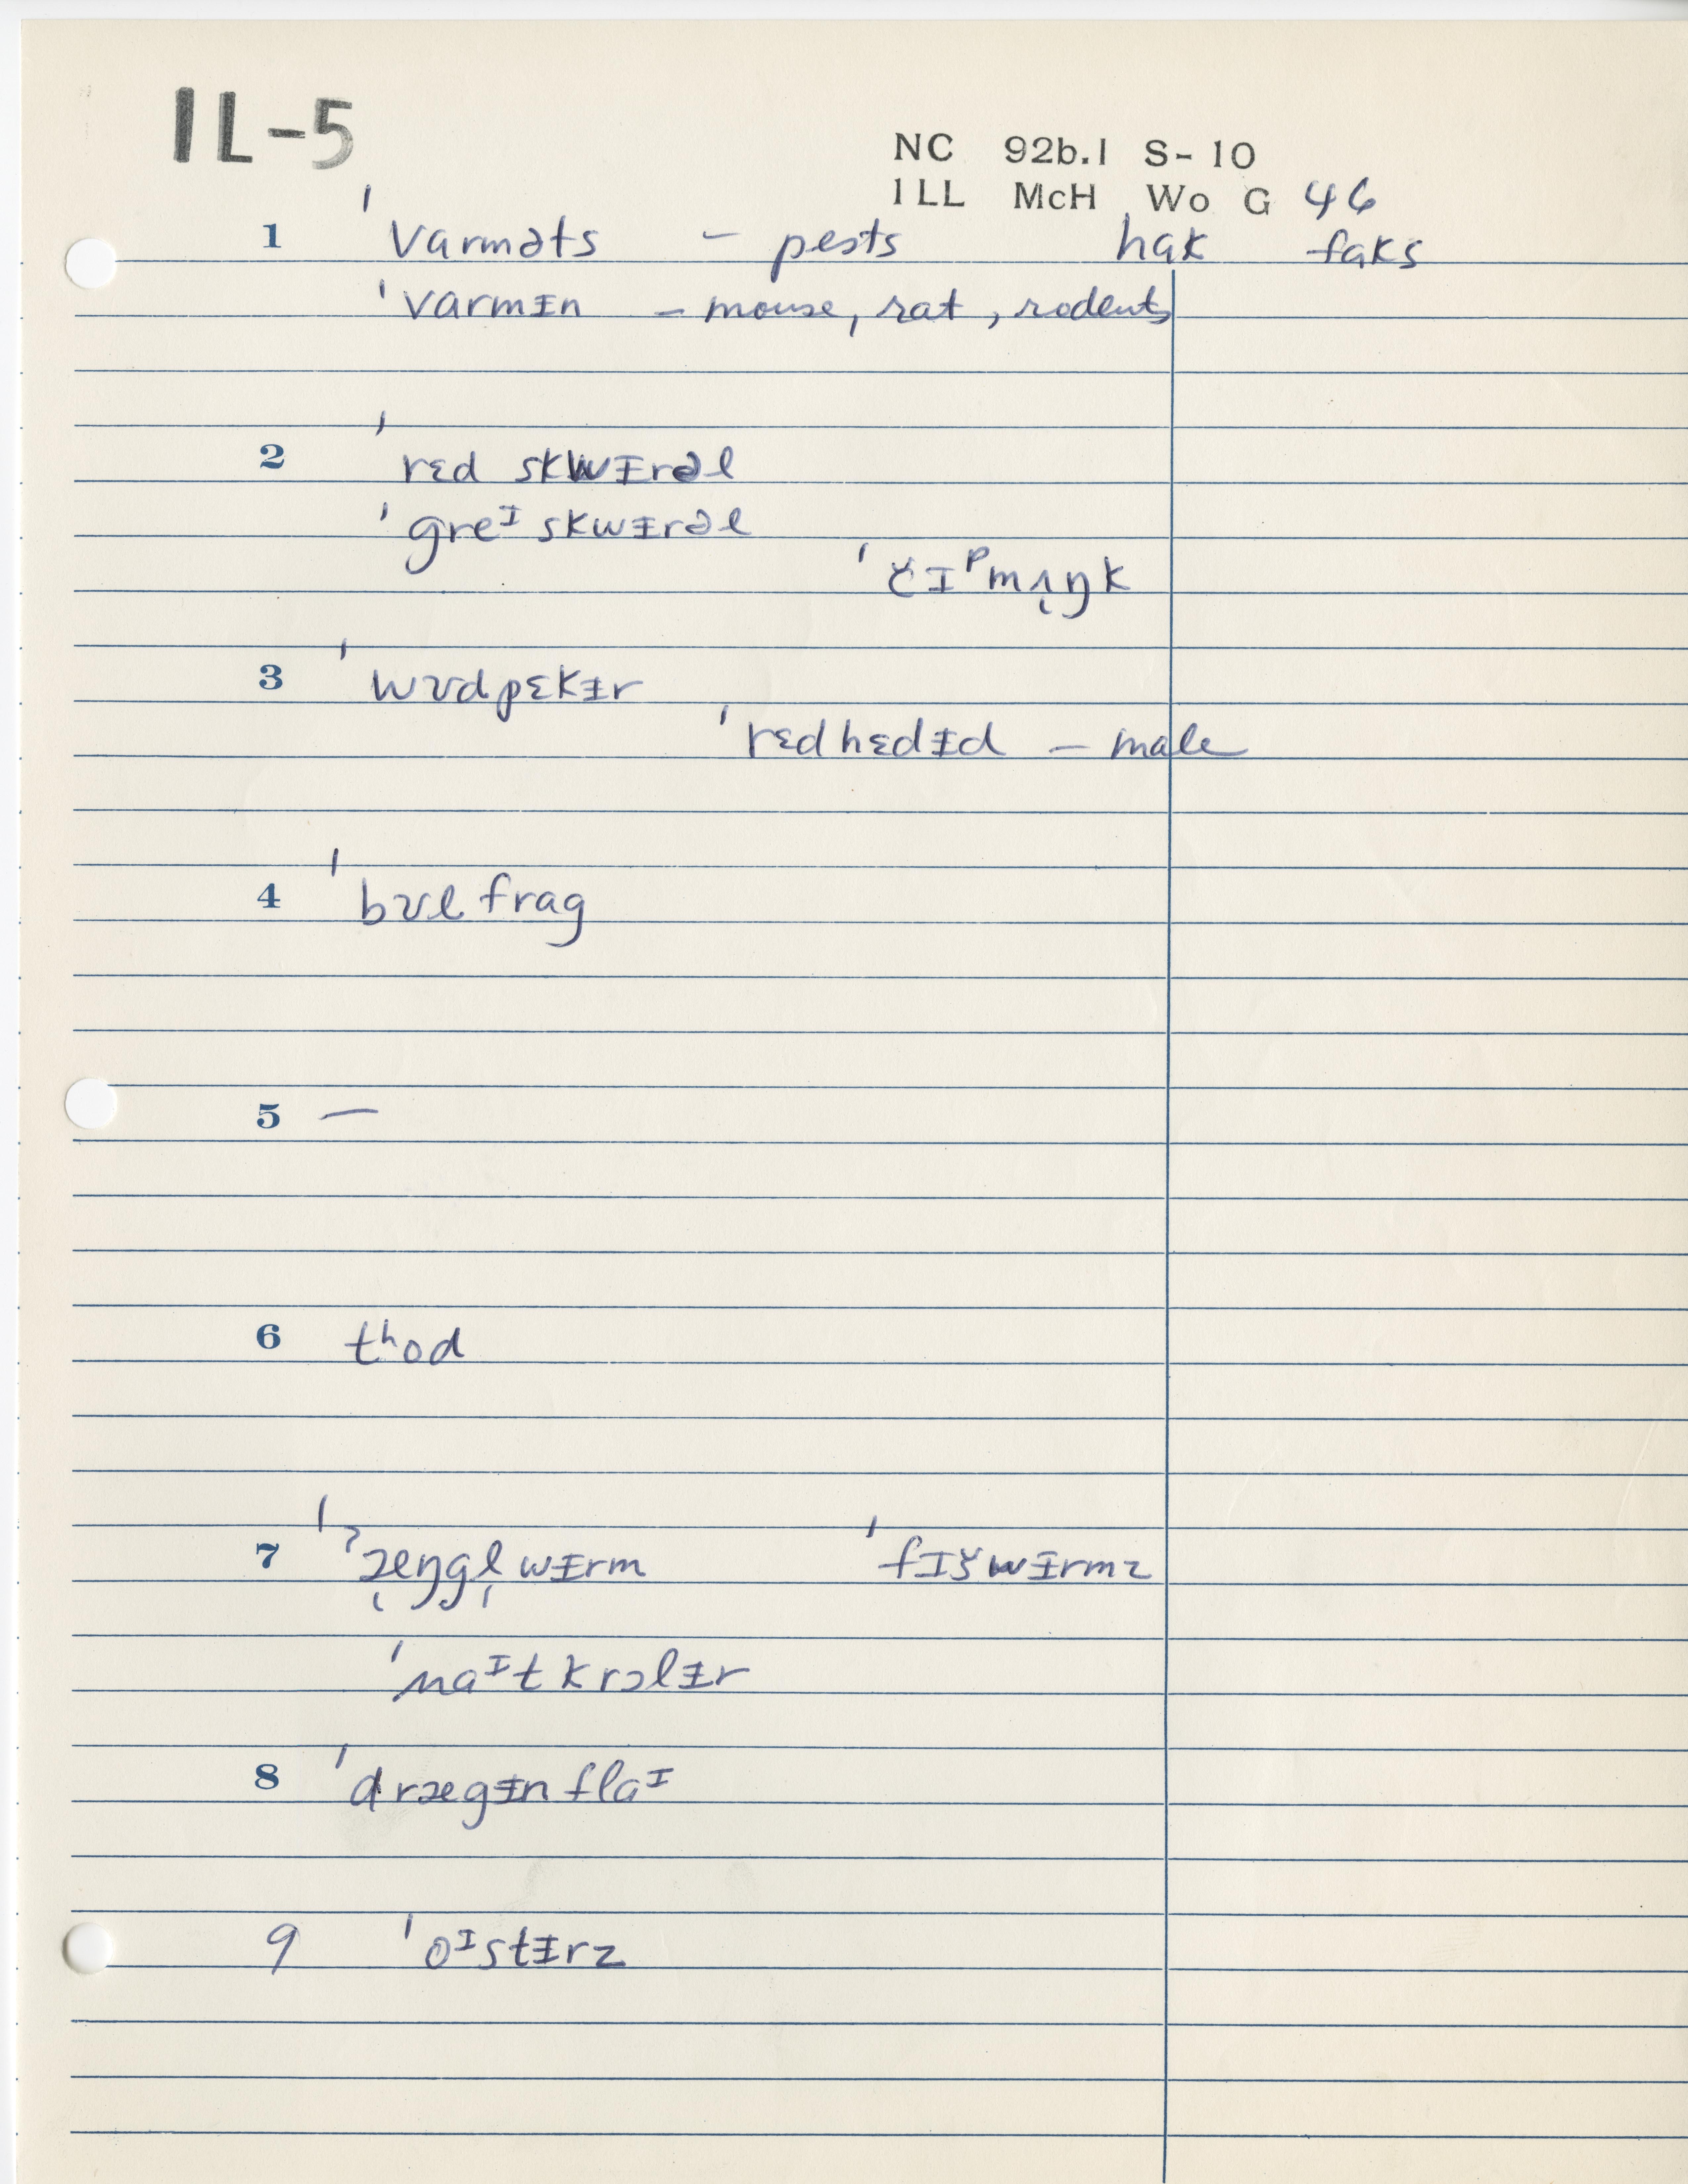 IL-5
NC 92b.1 S-10
ILL McH Wo G 46
1 ˈvarməts – pests hak faks
ˈvarmɪ̵n – mouse, rat, rodents
2 ˈrɛd skwɪ̵rəl
ˈgreᶦ skwɪ̵rəl
ˈčɪᵖmʌ̨ŋk
3 ˈwʊdpɛkɪ̵r
ˈrɛdhɛdɪ̵d – male
4 ˈbʊl frag
5 —
6 tʰod
7 ˈˀæ̨ŋgl̩ wɪ̵rm ˈfɪšwɪ̵rmz
ˈnaᶦt krɔlɪ̵r
8 ˈdrægɪ̵n flaᶦ
9 ˈoᶦstɪ̵rz